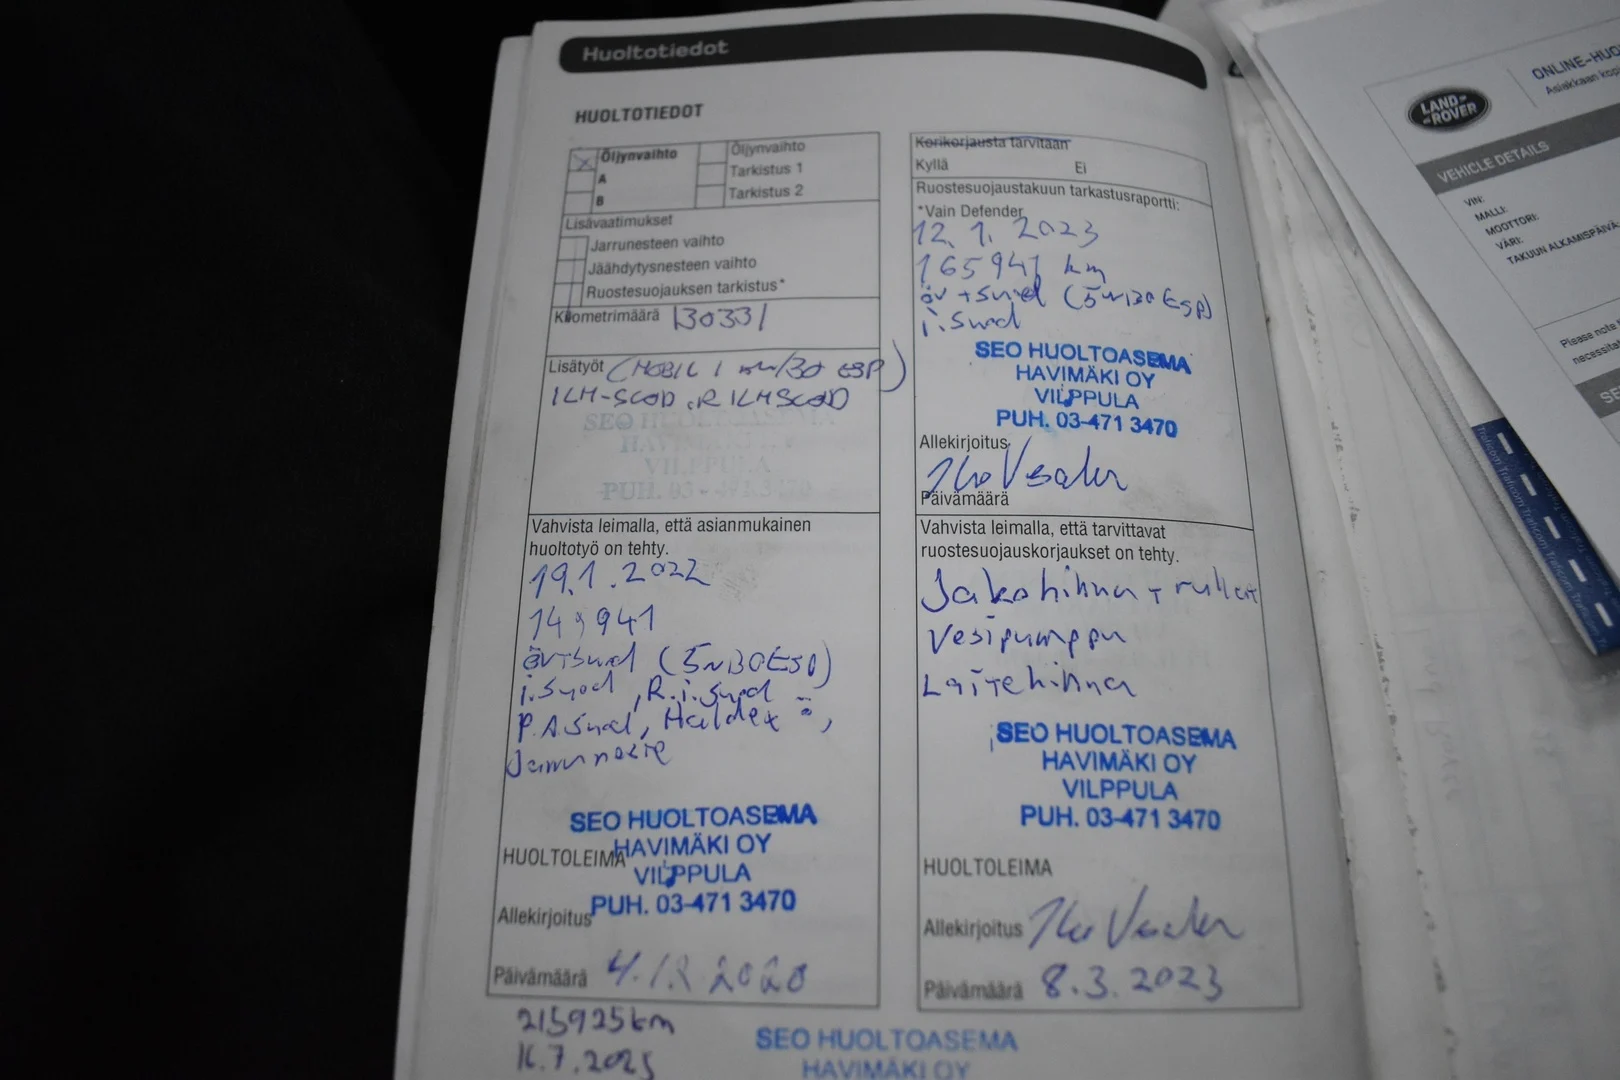 Huoltotiedot
HUOLTOTIEDOT
Öljynvaihto
A
B
Öljynvaihto
Tarkistus 1
Tarkistus 2
Lisävaatimukset
Jarrunesteen vaihto
Jäähdytysnesteen vaihto
Ruostesuojauksen tarkistus*
Kilometrimäärä 130331
Lisätyöt (MOBIL 1 5W/30 ESP)
ILM-SUOD, R ILMSUOD
SEO HUOLTOASEMA
HAVIMÄKI OY
VILPPULA
PUH. 03-471 3470
Vahvista leimalla, että asianmukainen
huoltotyö on tehty.
19.1.2022
149941
öv+suod (5W30 ESP)
i.suod, R.i.suod
P.A.suod, Haldex
Jarruneste
SEO HUOLTOASEMA
HAVIMÄKI OY
HUOLTOLEIMA
VILPPULA
PUH. 03-471 3470
Allekirjoitus
Päivämäärä 4.12.2020
215925 km
16.7.2025
Korikorjausta tarvitaan
Kyllä Ei
Ruostesuojaustakuun tarkastusraportti:
*Vain Defender
12.1.2023
165941 km
öv+suod (5W30 ESP)
i.suod
SEO HUOLTOASEMA
HAVIMÄKI OY
VILPPULA
PUH. 03-471 3470
Allekirjoitus
Päivämäärä
Vahvista leimalla, että tarvittavat
ruostesuojauskorjaukset on tehty.
Jakohihna + rullat
Vesipumppu
Laitehihna
SEO HUOLTOASEMA
HAVIMÄKI OY
VILPPULA
PUH. 03-471 3470
HUOLTOLEIMA
Allekirjoitus
Päivämäärä 8.3.2023
SEO HUOLTOASEMA
HAVIMÄKI OY
LAND ROVER
ONLINE-HUO
Asiakkaan kopi
VEHICLE DETAILS
VIN:
MALLI:
MOOTTORI:
VÄRI:
TAKUUN ALKAMISPÄIVÄ:
Please note
necessitat
SE
Traficom Traficom Traficom Traficom